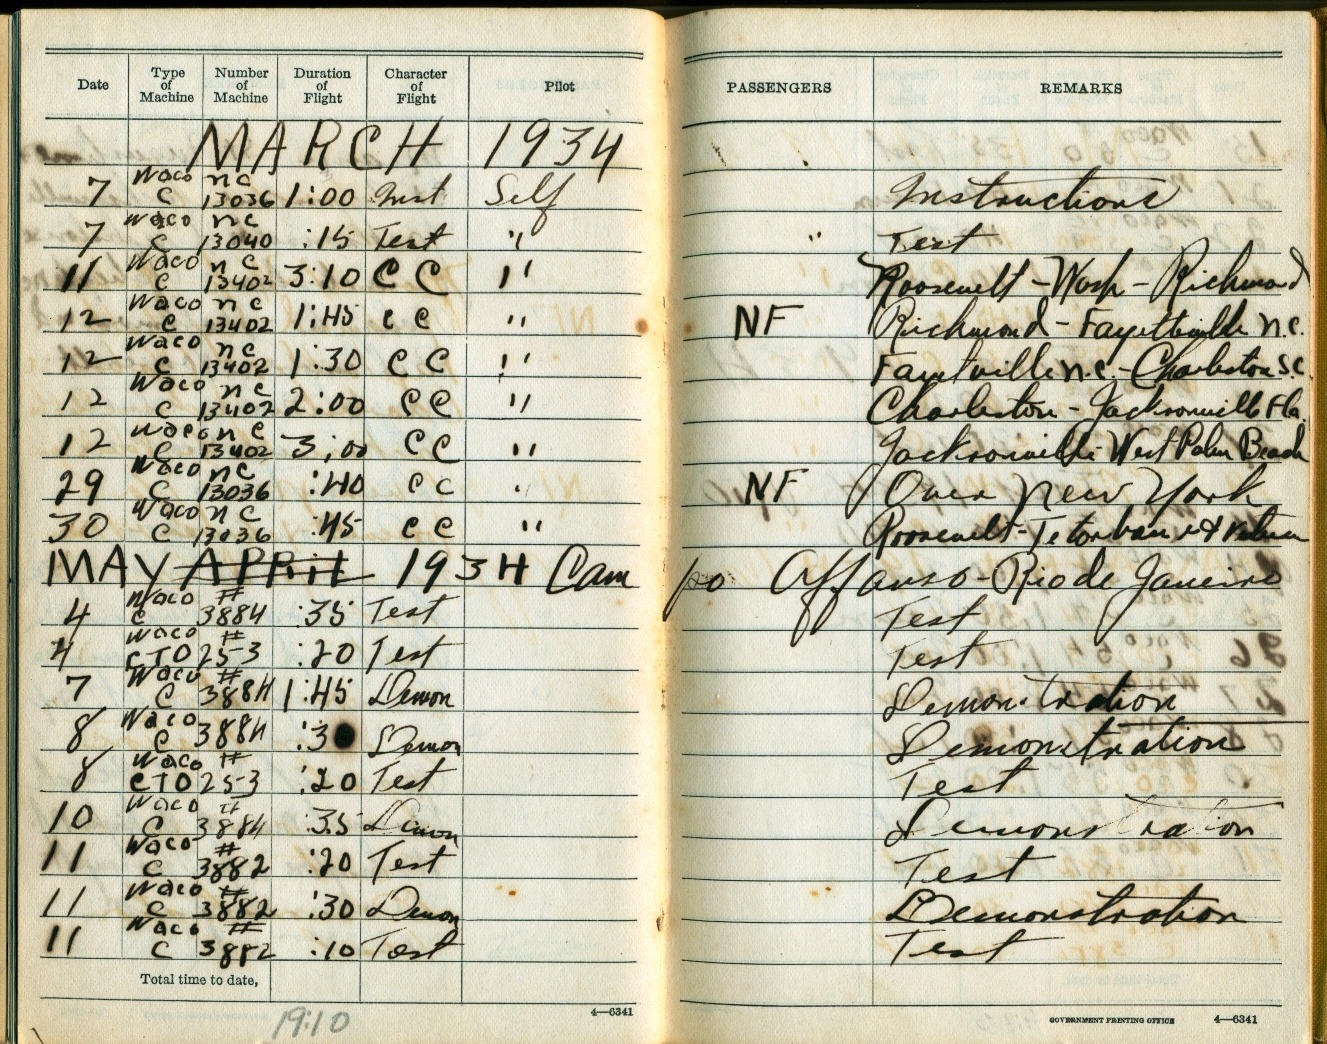 Date Type of Machine Number of Machine Duration of Flight Character of Flight Pilot PASSENGERS REMARKS
MARCH 1934
7 Waco C nc 13036 1:00 Inst Self Instructions
7 Waco C nc 13040 :15 Test " " Test
11 Waco C nc 13402 3:10 CC " Roosevelt - Wash - Richmond
12 Waco C nc 13402 1:45 CC " NF Richmond - Fayetteville n.c.
12 Waco C nc 13402 1:30 CC " n.c. - Charleston S.C.
12 Waco C nc 13402 2:00 CC " Charleston - Jacksonville Fla.
12 Waco C nc 13402 3:00 CC " Jacksonville - West Palm Beach
29 Waco C nc 13036 :40 CC " NF Over New York
30 Waco C nc 13036 :45 CC " Roosevelt - & return
MAY APRIL 1934 Campo Affonso - Rio de Janeiro
4 Waco C # 3884 :35 Test Test
4 Waco CTO # 253 :20 Test Test
7 Waco C # 3884 1:45 Demon Demonstration
8 Waco C # 3884 :3 Demon Demonstration
8 Waco CTO # 253 :20 Test Test
10 Waco C # 3884 :35 Demon Demonstration
11 Waco C # 3882 :20 Test Test
11 Waco C # 3882 :30 Demon Demonstration
11 Waco C # 3882 :10 Test Test
Total time to date,
19:10
4—6341
GOVERNMENT PRINTING OFFICE 4—6341